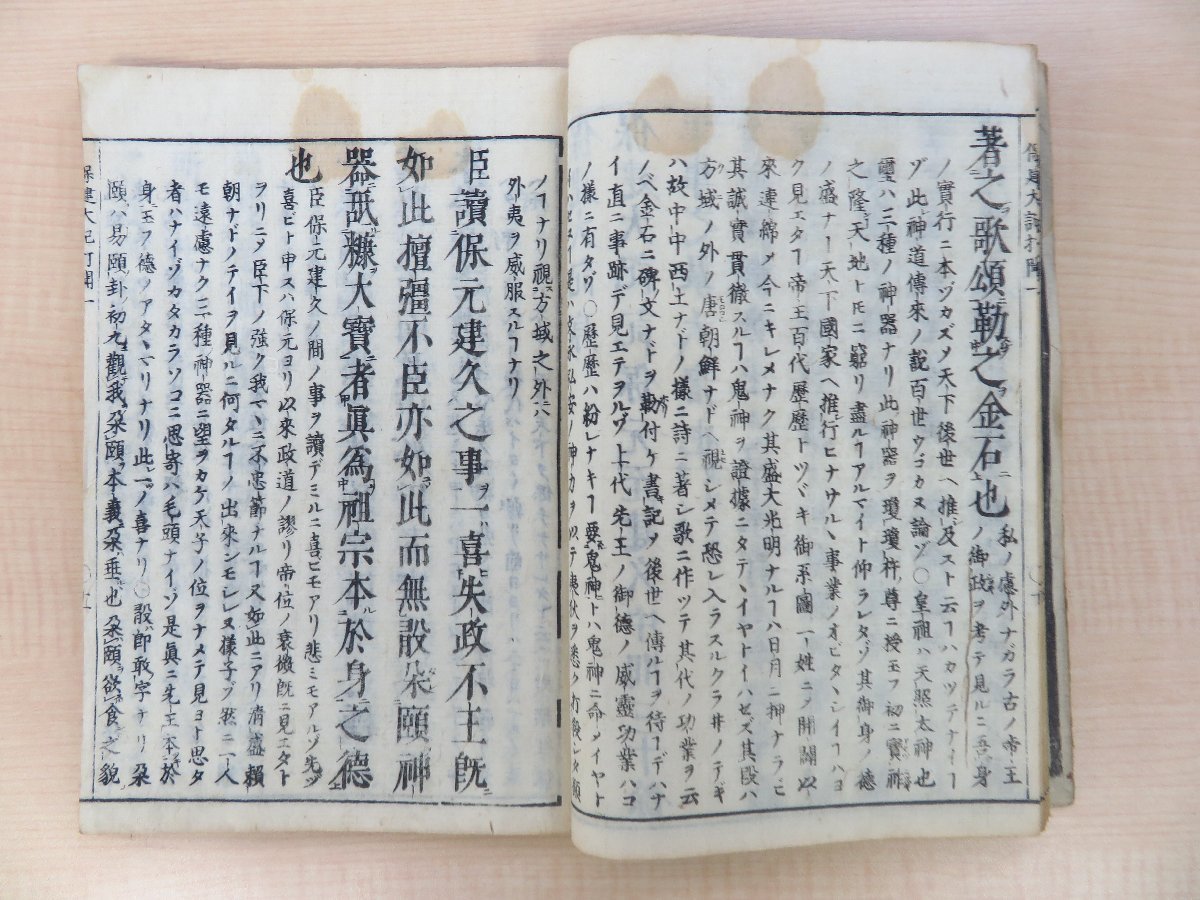 著之歌頌勒之金石ニ也 私ノ慮外ナガラ古ノ帝王ノ御政ヲ考テ見ルニ吾身
ノ實行ニ本ヅカズメ天下後世ヘ推及スト云フハカツテナイ
ヅ此神道傳來ノ説百世ウゴカヌ論ゾ○皇祖ハ天照太神也
璽ハ三種ノ神器ナリ此神器ヲ瓊瓊杵尊ニ授玉フ初ニ寶祚
之隆天地トトモニ窮リ盡ルヿアルマイト仰ラレタゾ其御身ノ德
ノ盛ナヿ天下國家ヘ推行ヒナサルヽ事業ノオビタヽシイヿハヨ
ク見エタヿ帝王百代歷歷トツヾキ御系圖一姓ニメ開闢以
來連綿メ今ニキレメナク其盛大光明ナルヿハ日月ニ押ナラヒ
其誠實貫徹スルヿハ鬼神ヲ證據ニタテヽイヤトイハセズ其段ハ
方域ノ外ノ唐朝鮮ナドヘ視シメテ恐レ入ラスルクラ井ノテギ
ハ故中中西土ナドノ樣ニ詩ニ著シ歌ニ作ツテ其代ノ功業ヲ云
ノベ金石ニ碑文ナドヲ勒付ケ書記ヲ後世ヘ傳ルヿヲ待ヿデハナ
イ直ニ事跡デ見エテヲルゾ上代先王ノ御德ノ威靈功業ハコ
ノ樣ニ有タゾ○歷歷ハ紛レナキヿ要鬼神トハ鬼神ニ命メイヤト
ノヿナリ視方域之外ニハ
外夷ヲ威服スルヿナリ
臣讀保元建久之事ヲ一喜失政不王既ニ
如此擅彊不臣亦如此而無設朶頤神
器ニ舐糠大寶ニ者眞爲祖宗本於身之德
也 臣保元建久ノ間ノ事ヲ讀デミルニ喜ビモアリ悲ミモアルゾ先ヅ
喜ビト申スハ保元ヨリ以來政道ノ謬リ帝位ノ衰微既ニ見エタト
ヲリニメ臣下ノ強ク我マヽニ不忠節ナルヿ又如此ニアリ淸盛賴
朝ナドノテイヲ見ルニ何タルヿノ出來ンモシレヌ樣子ゾ然ニ一人
モ遠慮ナク三種神器ニ望ヲカケ天子ノ位ヲナメテ見ヨト思タ
者ハナイゾカタカラソコニ思寄ハ毛頭ナイゾ是眞ニ先王本於
身玉フ德ノアタヽマリナリ此一ノ喜ナリ○設卽敢字ナリ朶
頤ハ易頤卦初九觀我朶頤本義朶垂也朶頤欲食之貌
保建大記打聞一